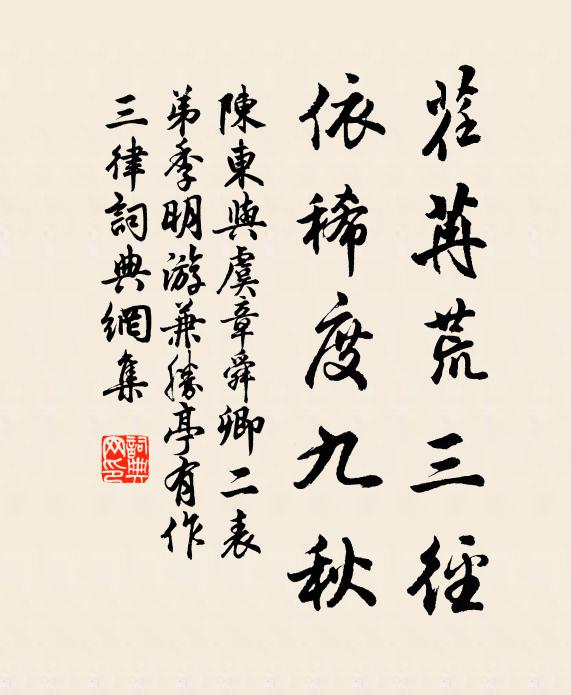 荏苒荒三徑
依稀度九秋
陳東與虞章舜卿二表
弟季明游兼勝亭有作
三律詞典網集
詞典網印